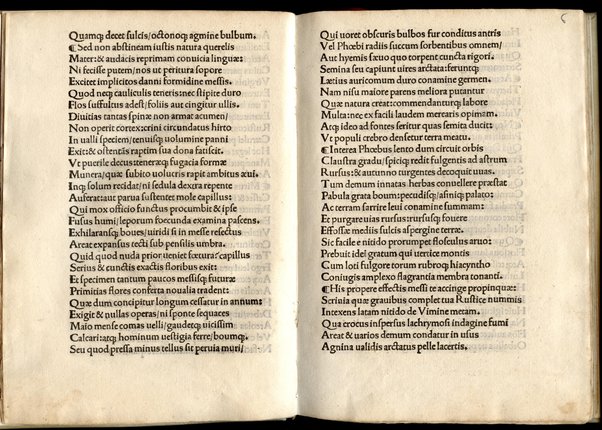 Quamq; decet sulcis/octonoq; agmine bulbum.
¶Sed non abstineam iustis natura querelis
Mater: & audacis reprimam conuicia linguæ:
Ni fecisse putem/nos ut peritura sopore
Excitet implicitos damni formidine messis.
Quod neq; cauliculis teneris: nec stipite duro
Flos suffultus adest/foliis aut cingitur ullis.
Diuitias tantas spinæ non armat acumen/
Non operit cortex: crini circundatus hirto
In ualli speciem/tenuisq; uolumine panni
Exit: & ostentās raptim sua dona fatiscit.
Vt puerile decus: teneræq; fugacia formæ
Munera/quæ subito uolucris rapit ambitus æui.
Inq; solum recidat/ni sedula dexera repente
Auferat: aut parua sustentet mole capillus:
Qui mox officio functus procumbit & ipse
Fusus humi/leporum foecunda examina pascens.
Exhilaransq; boues/uiridi si in messe resectus
Areat expansus tecti sub pensilis umbra.
Quid quod nuda prior ueniet foetura: capillus
Serius & cunctis exactis floribus exit:
Et specimen tantum paucos messisq; futuræ
Primitias flores conferta noualia tradent:
Quæ dum concipitur longum cessatur in annum:
Exigit & nullas operas/ni sponte sequaces
Maio mense comas uelli/gaudetq; uicissim
Calcari: atq; hominum uestigia ferre/boumq;.
Seu quod pressa minus tellus sit peruia muri/
6
Qui uoret obscuris bulbos fur conditus antris
Vel Phœbi radiis succum sorbentibus omnem/
Aut hyemis sæuo quo torpent cuncta rigori.
Semina seu capiunt uires arctata: feruntq;
Lætius auricomum duro conamine germen.
Nam nisu maiore parens meliora putantur
Quæ natura creat: commendanturq; labore
Multa: nec ex facili laudem merearis opimam.
Atq; ideo ad fontes seritur quas semita ducit:
Vt populi crebro densetur terra meatu.
¶Interea Phœbus lento dum circuit orbis
Claustra gradu/spiciq; redit fulgentis ad astrum
Rursus: & autunno turgentes decoquit uuas.
Tum demum innatas herbas conuellere præstat
Pabula grata boum: petudisq;/asiniq; palato:
Ac terram sarrire leui conamine summam:
Et purgare uias rursus: rursusq; fouere
Effossæ mediis sulcis aspergine terræ.
Sic facile e nitido prorumpet flosculus aruo:
Prebuit idel gratum qui uertice montis
Cum loti fulgore torum rubroq; hiacyntho
Coniugis amplexo flagrantia membra tonanti.
¶His propere effectis messi te accinge propinquæ:
Scrinia quæ grauibus complet tua Rustice nummis
Intexens latam nitido de Vimine metam.
Qua crocus inspersus lachrymosi indagine fumi
Areat & uarios demum condatur in usus
Agnina ualidis arctatus pelle lacertis.